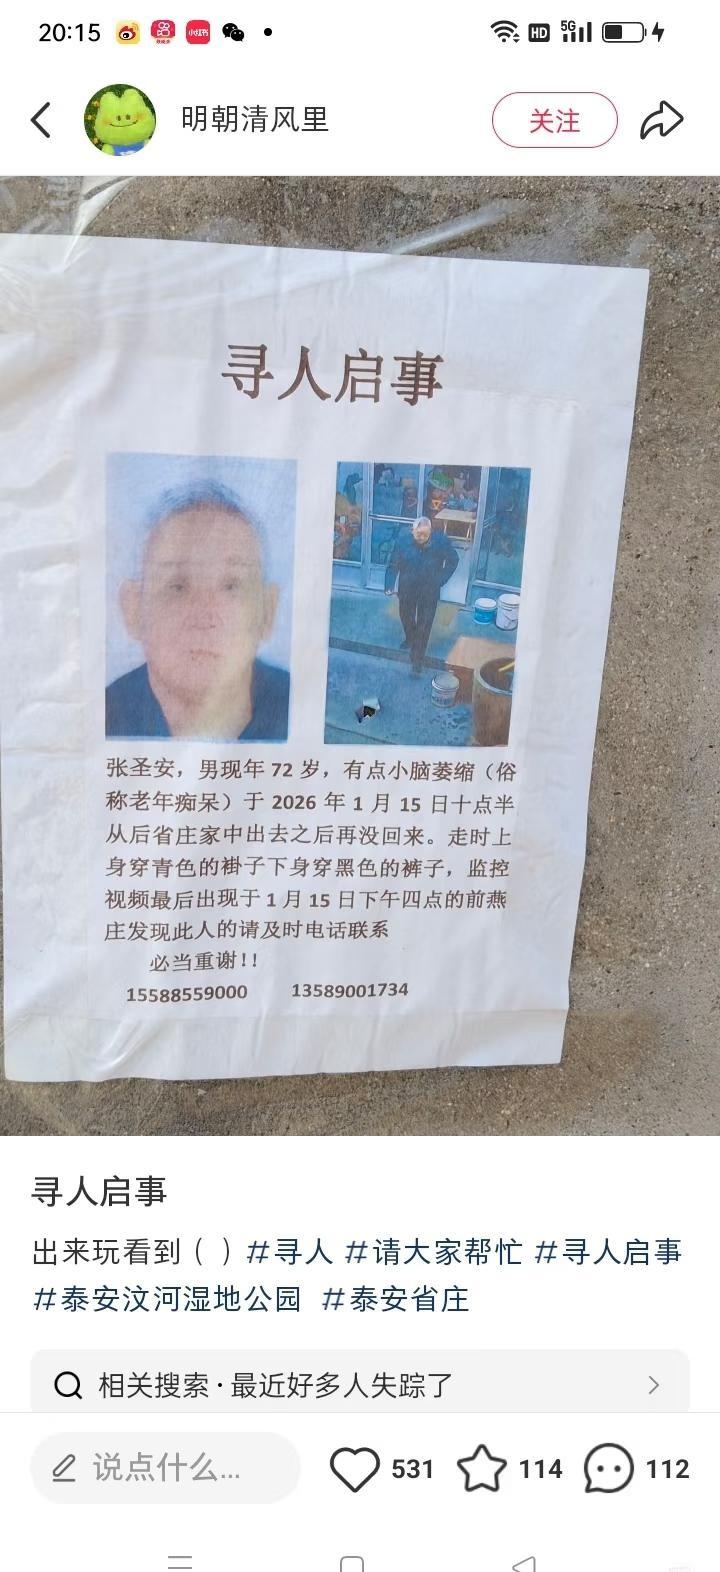 20:15
小红书
HD
5G
明朝清风里
关注
寻人启事
张圣安，男现年 72 岁，有点小脑萎缩（俗
称老年痴呆）于 2026 年 1 月 15 日十点半
从后省庄家中出去之后再没回来。走时上
身穿青色的褂子下身穿黑色的裤子，监控
视频最后出现于 1 月 15 日下午四点的前燕
庄发现此人的请及时电话联系
必当重谢！！
15588559000 13589001734
寻人启事
出来玩看到（ ）#寻人 #请大家帮忙 #寻人启事
#泰安汶河湿地公园 #泰安省庄
相关搜索 · 最近好多人失踪了
说点什么...
531
114
112